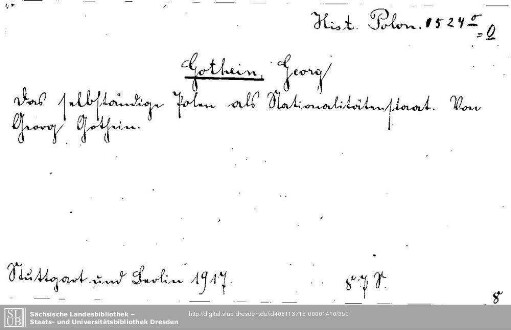 Hist. Polon. 1524
Gothein, Georg
Das selbständige Polen als Nationalitätenstaat. Von
Georg Gothein.
Stuttgart und Berlin 1917.
87 S.
8
SLUB
Sächsische Landesbibliothek –
Staats- und Universitätsbibliothek Dresden